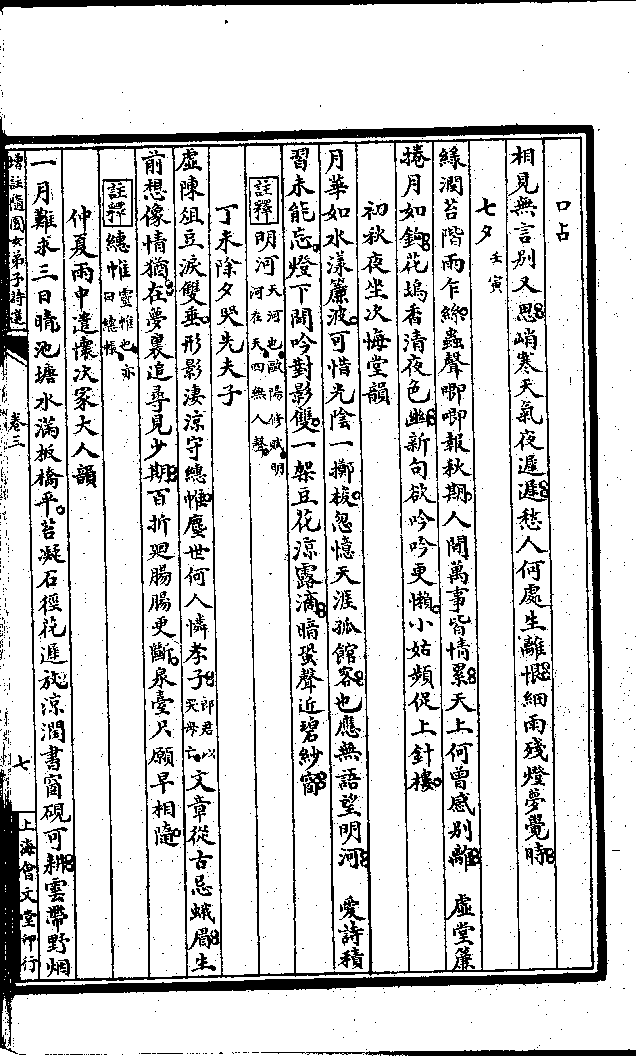 口占
相見無言別又思峭寒天氣夜遲遲愁人何處生離恨細雨殘燈夢覺時
七夕 壬寅
綠潤苔階雨乍絲蟲聲唧唧報秋期人間萬事皆情累天上何曾感別離　虛堂簾
捲月如鉤花塢香清夜色幽新句欲吟吟更懶小姑頻促上針樓
初秋夜坐次悔堂韻
月華如水漾簾波可惜光陰一擲梭忽憶天涯孤館客也應無語望明河　愛詩積
習未能忘燈下閒吟對影雙一架豆花涼露滴暗蛩聲近碧紗窗
註釋 明河 天河也歐陽修賦明河在天四無人聲
丁未除夕哭先夫子
虛陳俎豆淚雙垂形影淒涼守繐帷塵世何人憐孝子 郎君以哭母亡 文章從古忌蛾眉生
前想像情猶在夢裏追尋見少期百折迴腸腸更斷泉臺只願早相隨
註釋 繐帷 靈帷也亦曰繐帳
仲夏雨中遣懷次家大人韻
一月難求三日晴池塘水滿板橋平苔凝石徑花遲放涼潤書窗硯可耕雲帶野烟
增註隨園女弟子詩選　卷三　七　上海會文堂印行